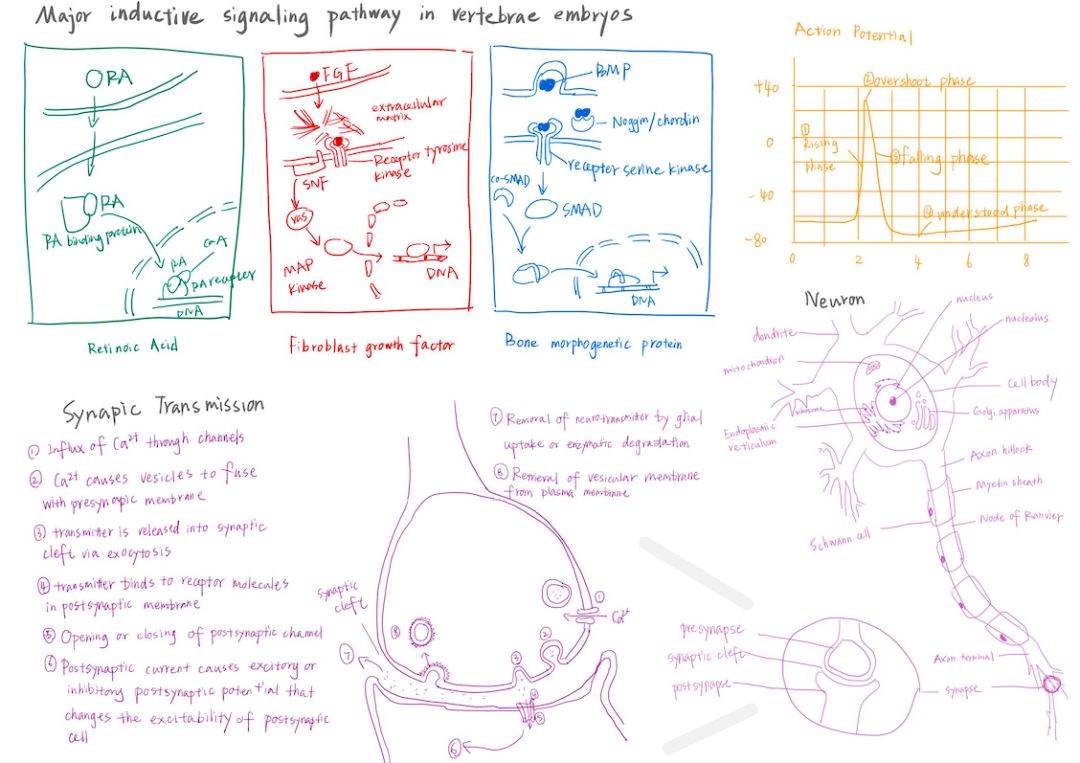 Major inductive signaling pathway in vertebrae embryos
RA
RA
RA binding protein
RA
co-A
RA receptor
DNA
Retinoic Acid
FGF
extracellular
matrix
Receptor tyrosine
kinase
SNF
ras
MAP
kinase
DNA
Fibroblast growth factor
BMP
Noggin/chordin
receptor serine kinase
co-SMAD
SMAD
DNA
Bone morphogenetic protein
Action Potential
+40
0
-40
-80
0
2
4
6
8
② overshoot phase
①
Rising
phase
③ falling phase
④ understood phase
Neuron
nucleus
nucleolus
dendrite
mitochondrion
cell body
Golgi apparatus
ribosome
Endoplasmic
reticulum
Axon hillock
Myelin sheath
Node of Ranvier
Schwann cell
Axon terminal
synapse
presynapse
synaptic cleft
postsynapse
Synapic Transmission
① Influx of Ca²⁺ through channels
② Ca²⁺ causes vesicles to fuse
with presynapic membrane
③ transmitter is released into synaptic
cleft via exocytosis
④ transmitter binds to receptor molecules
in postsynaptic membrane
⑤ Opening or closing of postsynaptic channel
⑥ Postsynaptic current causes excitory or
inhibitory postsynaptic potential that
changes the excitability of postsynaptic
cell
⑦ Removal of neurotransmitter by glial
uptake or enzymatic degradation
⑧ Retrieval of vesicular membrane
from plasma membrane
synaptic
cleft
①
Ca²⁺
②
③
④
⑤
⑥
⑦
⑧